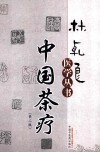 林乾良
医学丛书
中国茶疗